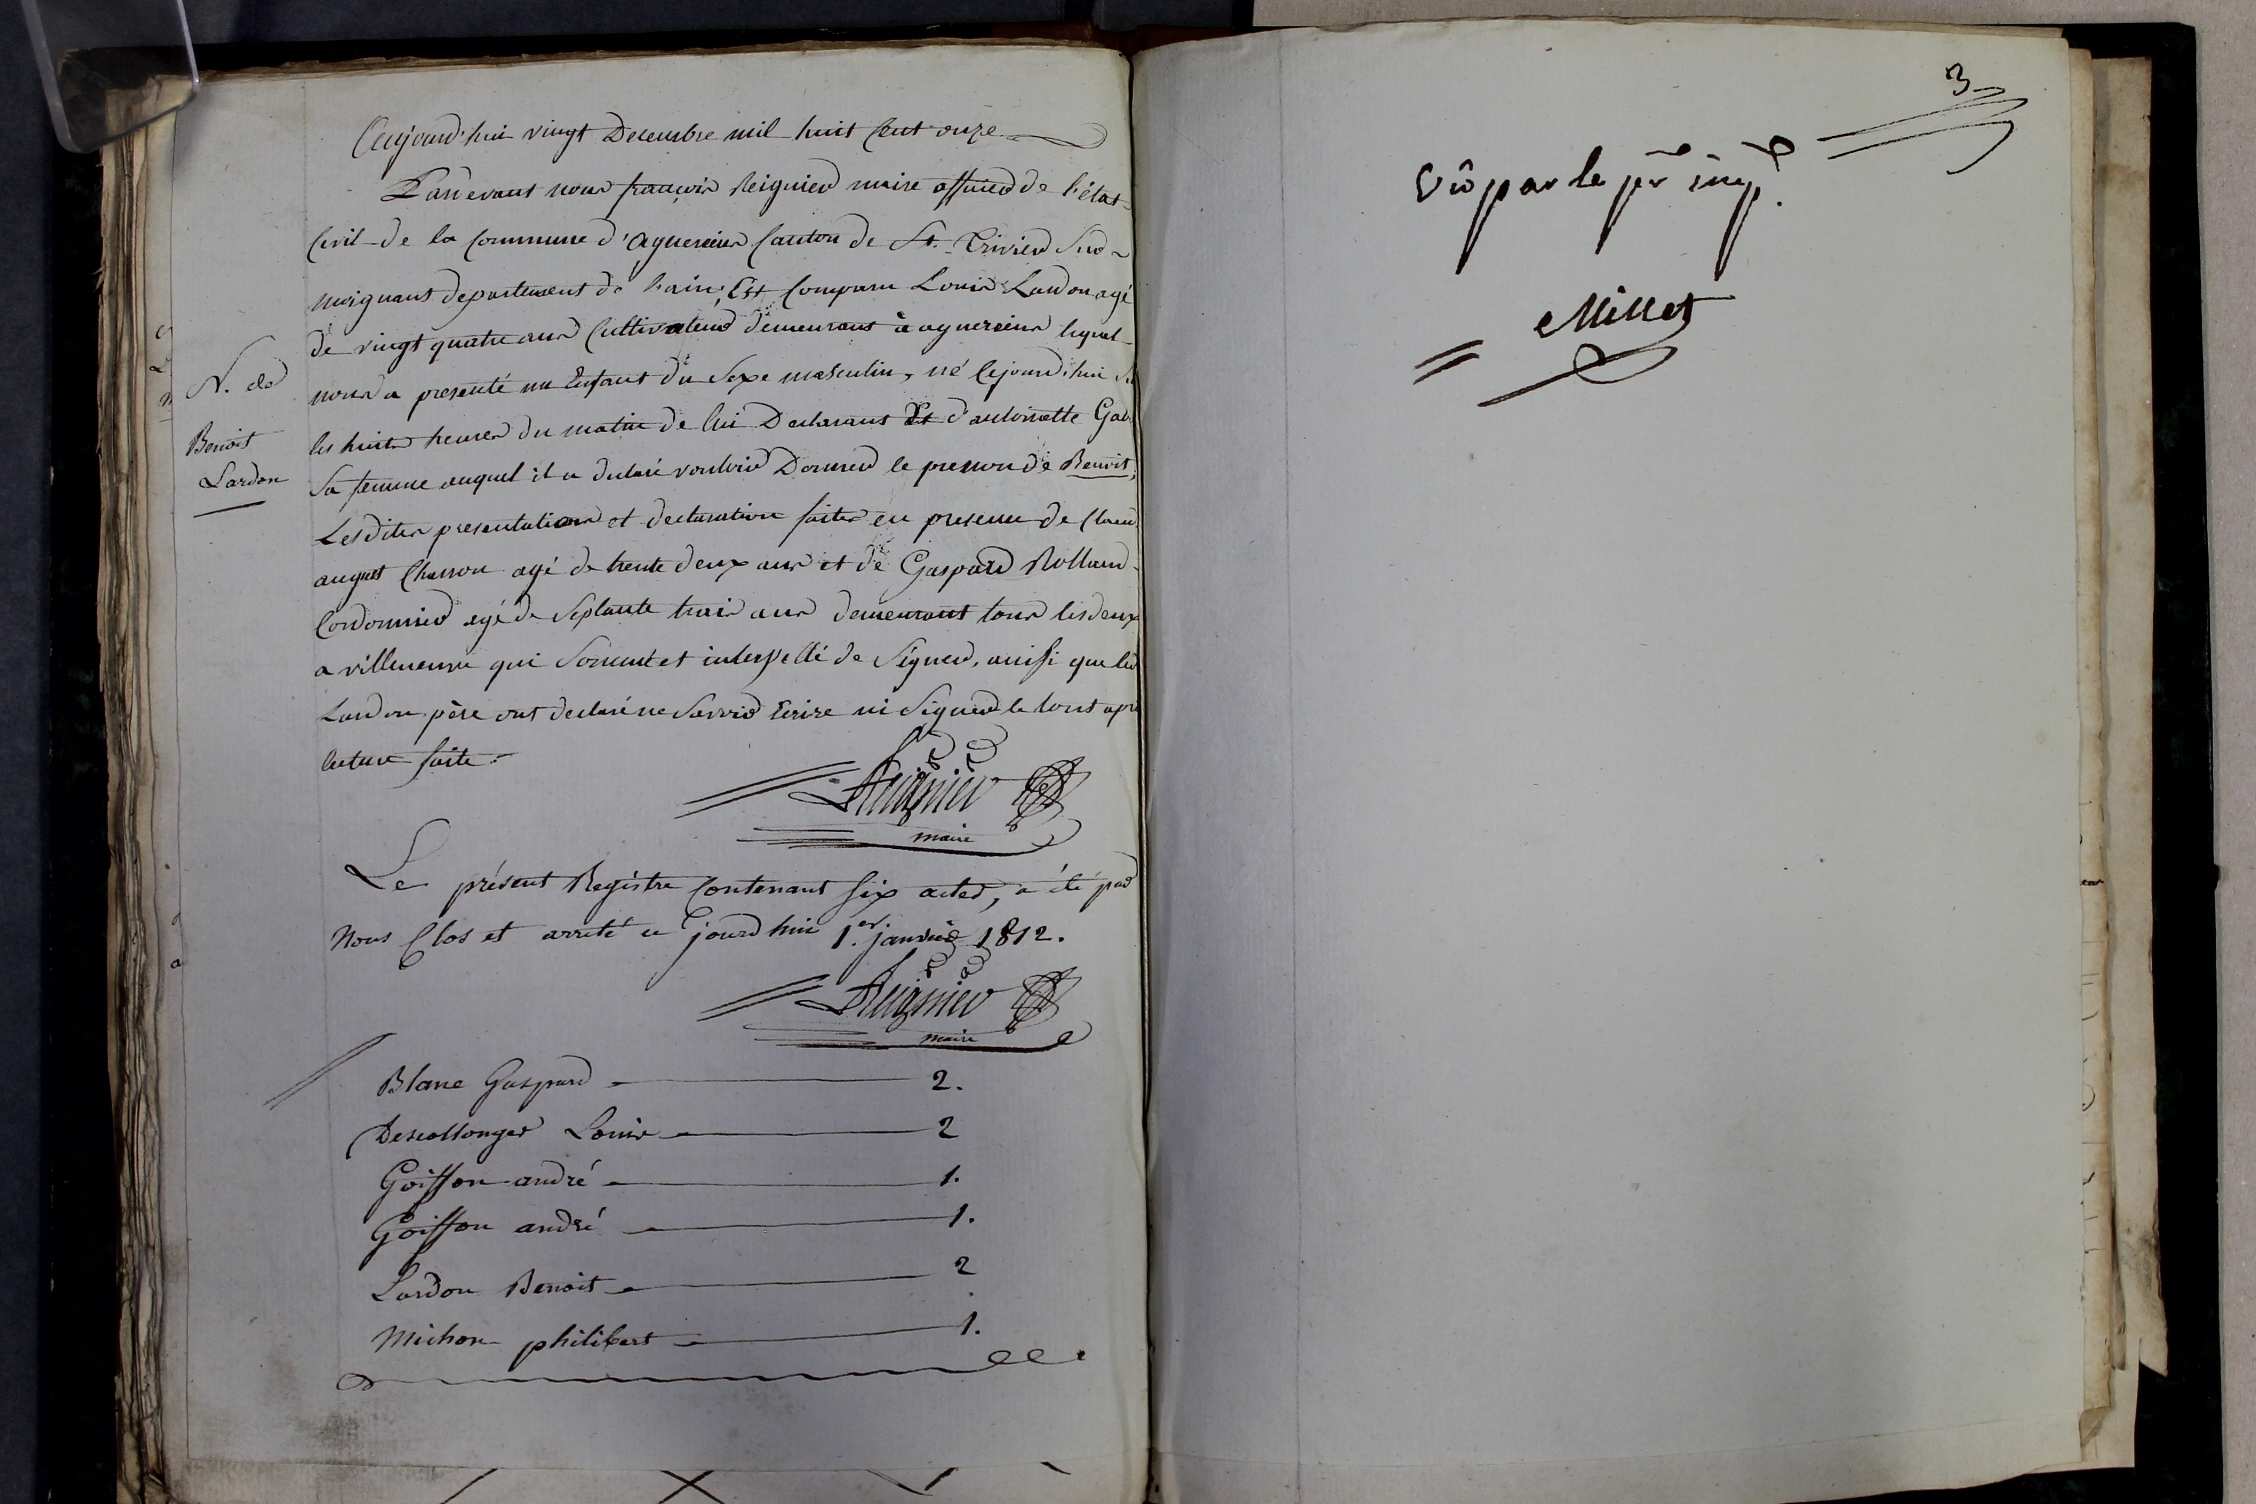 Aujourd'hui vingt Decembre mil huit Cent onze
Pardevant nous françois Reignier maire officier de l'état
Civil de la Commune d'agnereins Canton de St. Trivier Sur
moignans departement de l'ain, Est Comparu Louis Lardon agé
de vingt quatre ans Cultivateur demeurant à agnereins lequel
nous a presenté un Enfant du Sexe masculin, né Cejourd'hui
N. de
Benoit
Lardon
les huit heures du matin de lui Declarant Et d'antoinette
Sa femme auquel il a declaré vouloir Donner le prenom de Benoit,
Lesdites presentation et declaration faites en presence de
auguet Charron agé de trente deux ans et de Gaspard Rolland
Cordonnier agé de Septante trois ans demeurant tous les deux
a villeneuve qui Soient et interpellé de Signer, ainsi que led
Lardon père ont declaré ne Savoir Ecrire ni Signer le tout
lecture faite.
Reignier
maire
Le présent Registre Contenant Six actes, a été par
Nous Clos et arreté ce jourd'hui 1.er janvier 1812.
Reignier
maire
Blanc Gaspard 2.
Descollonges Louis 2
Goiffon andré 1.
Goiffon andré 1.
Lardon Benoit 2
Michon philibert 1.
3
Vû par le pr imp.
Millet